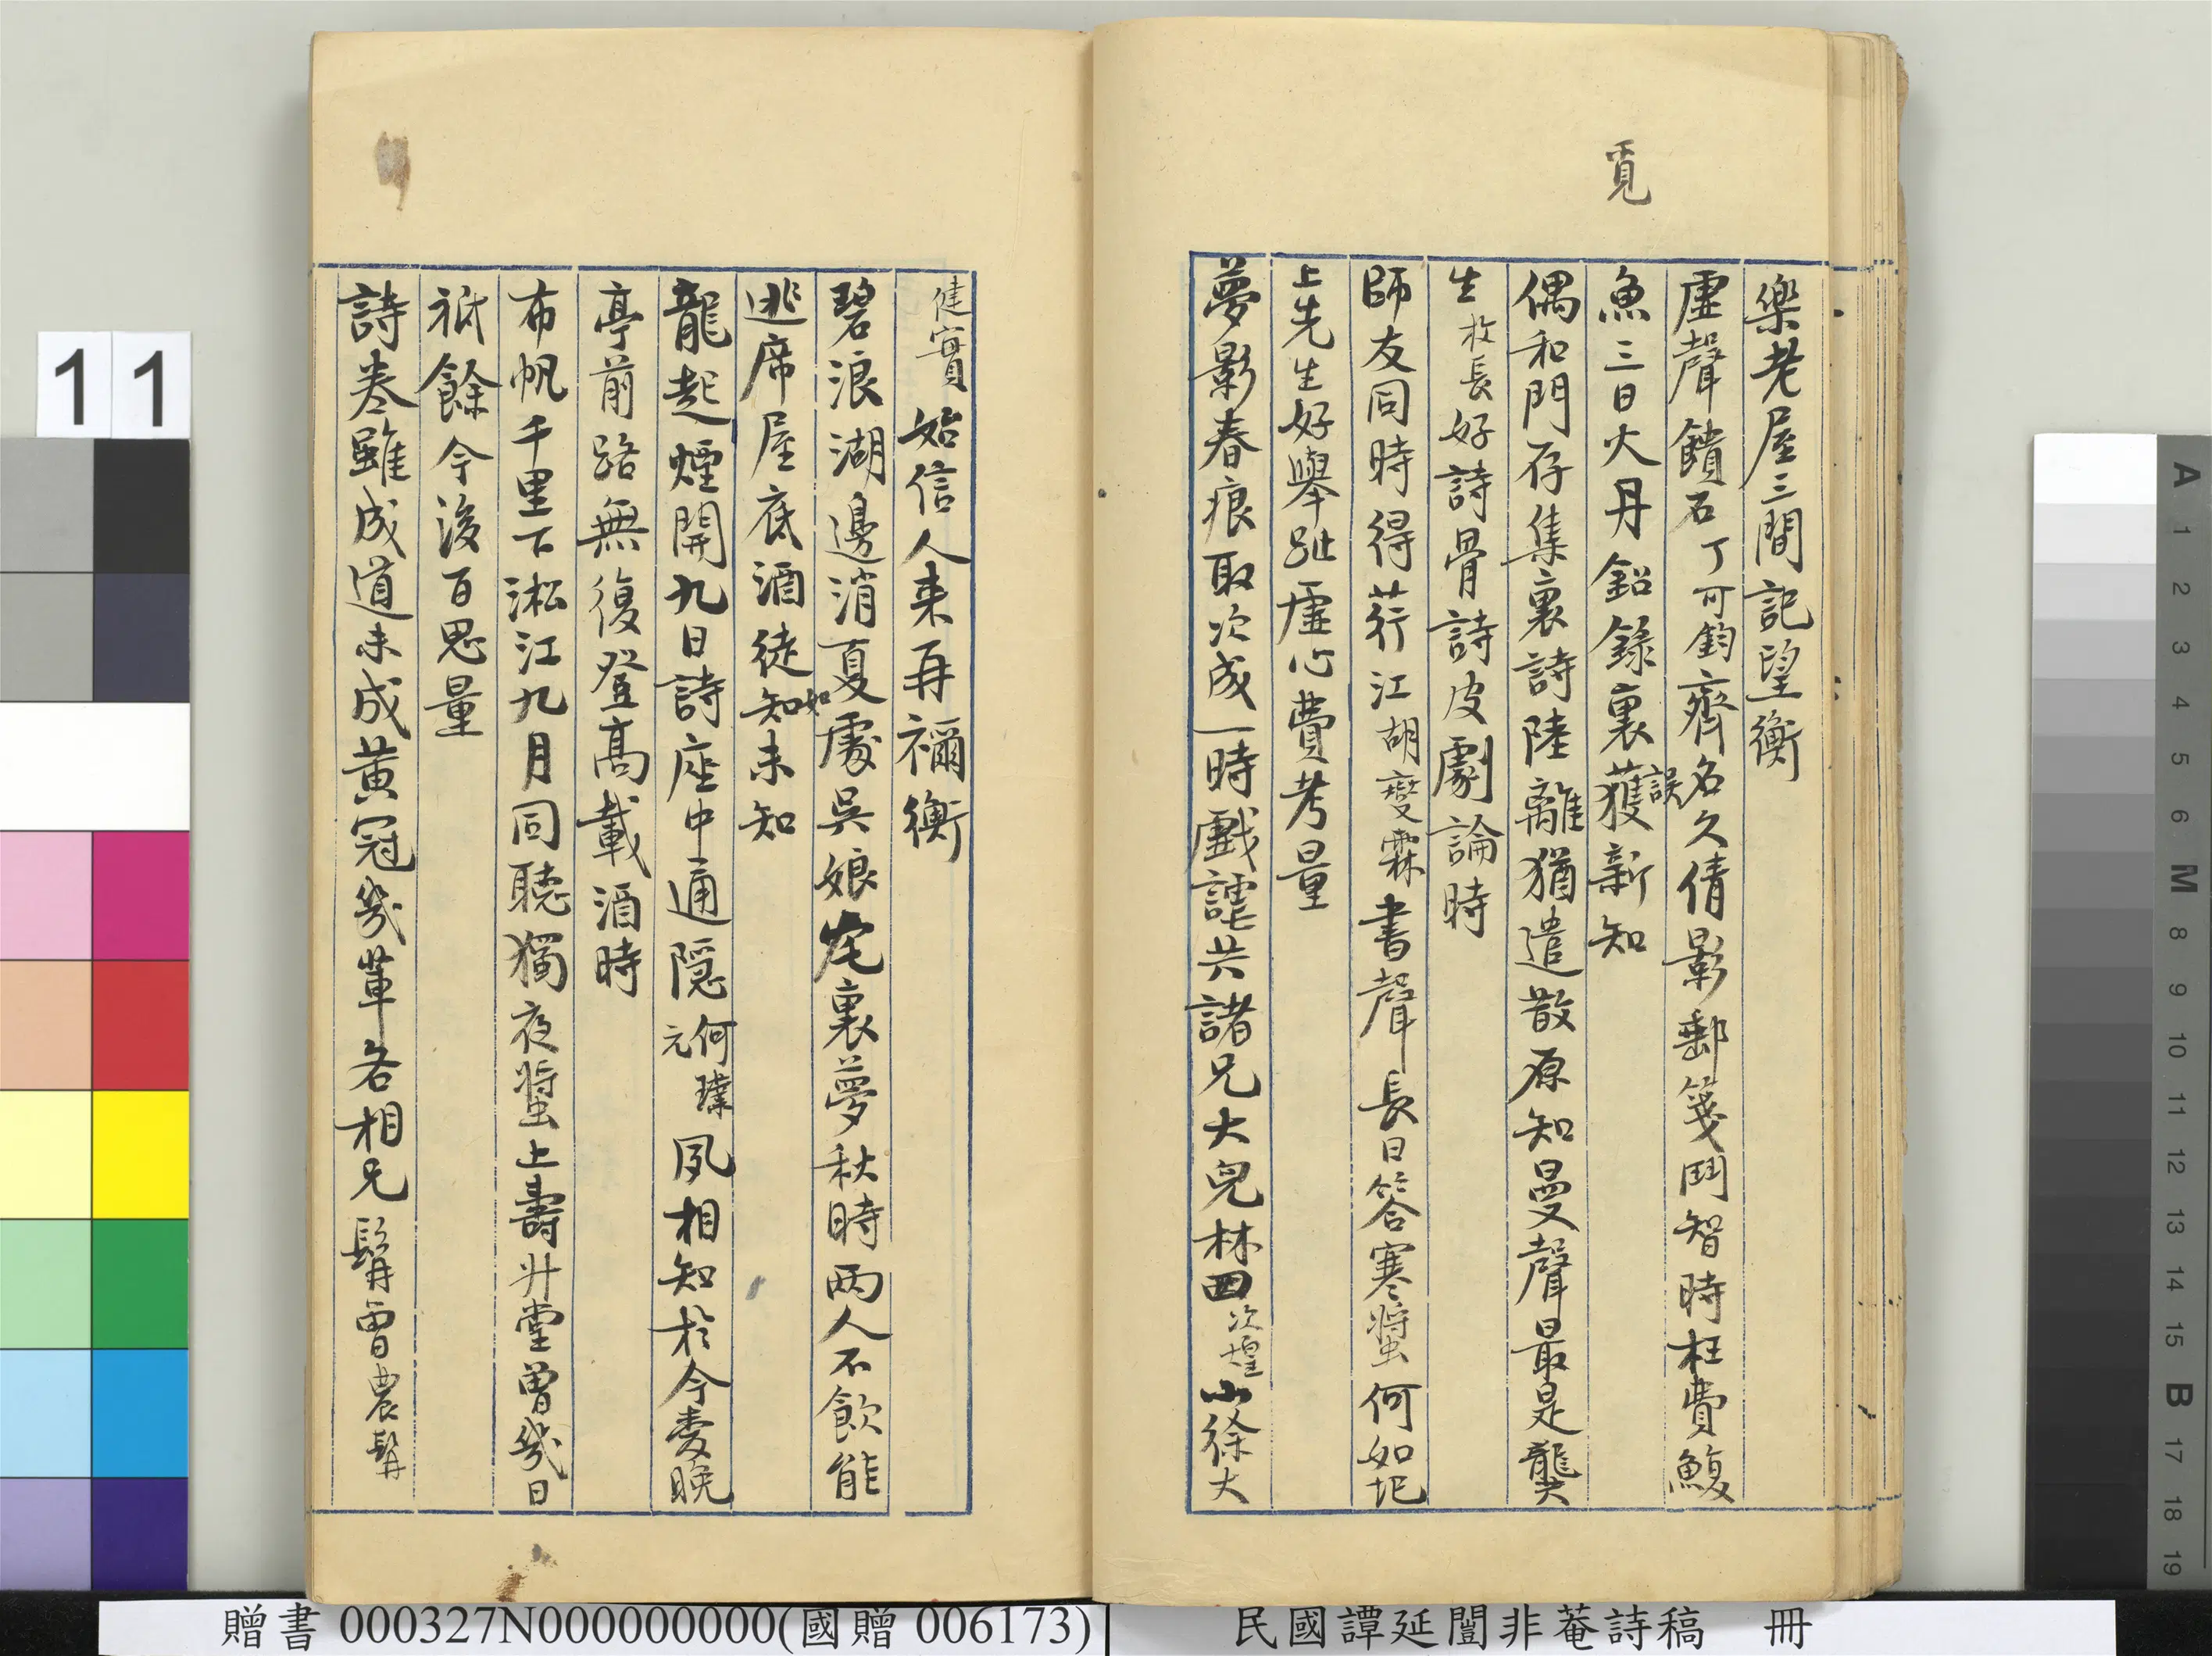 覓
樂老屋三間記望衡
虛聲饋石丁可鈞齊名久倩影郵箋鬥智時枉費鰒
魚三日大丹鉛錄裏獲新知
誤
偶和門存集裏詩陸離猶遣散原知曼聲最是龔
生 枚長 好詩骨詩皮劇論時
師友同時得荇江 胡夔霖 書聲長日答寒螿何如圯
上先生好舉趾虛心費考量
夢影春痕取次成一時戲謔共諸兄大兒林四 次煌 小徐大
健實 始信人来再禰衡
碧浪湖邊消夏處吳娘宅裏夢秋時两人不飲能
逃席屋底酒徒知未知
如
龍起煙開九日詩座中通隱 何璞元 夙相知於今婁晚
亭前路無復登高載酒時
布帆千里下淞江九月同聽獨夜螿上壽升堂曾幾日
祇餘今後百思量
詩卷雖成道未成黃冠幾輩各相兄 髯曾農髯
11
贈書 000327N000000000(國贈 006173)
民國譚延闓非菴詩稿 冊
A 1 2 3 4 5 6 M 8 9 10 11 12 13 14 15 B 17 18 19